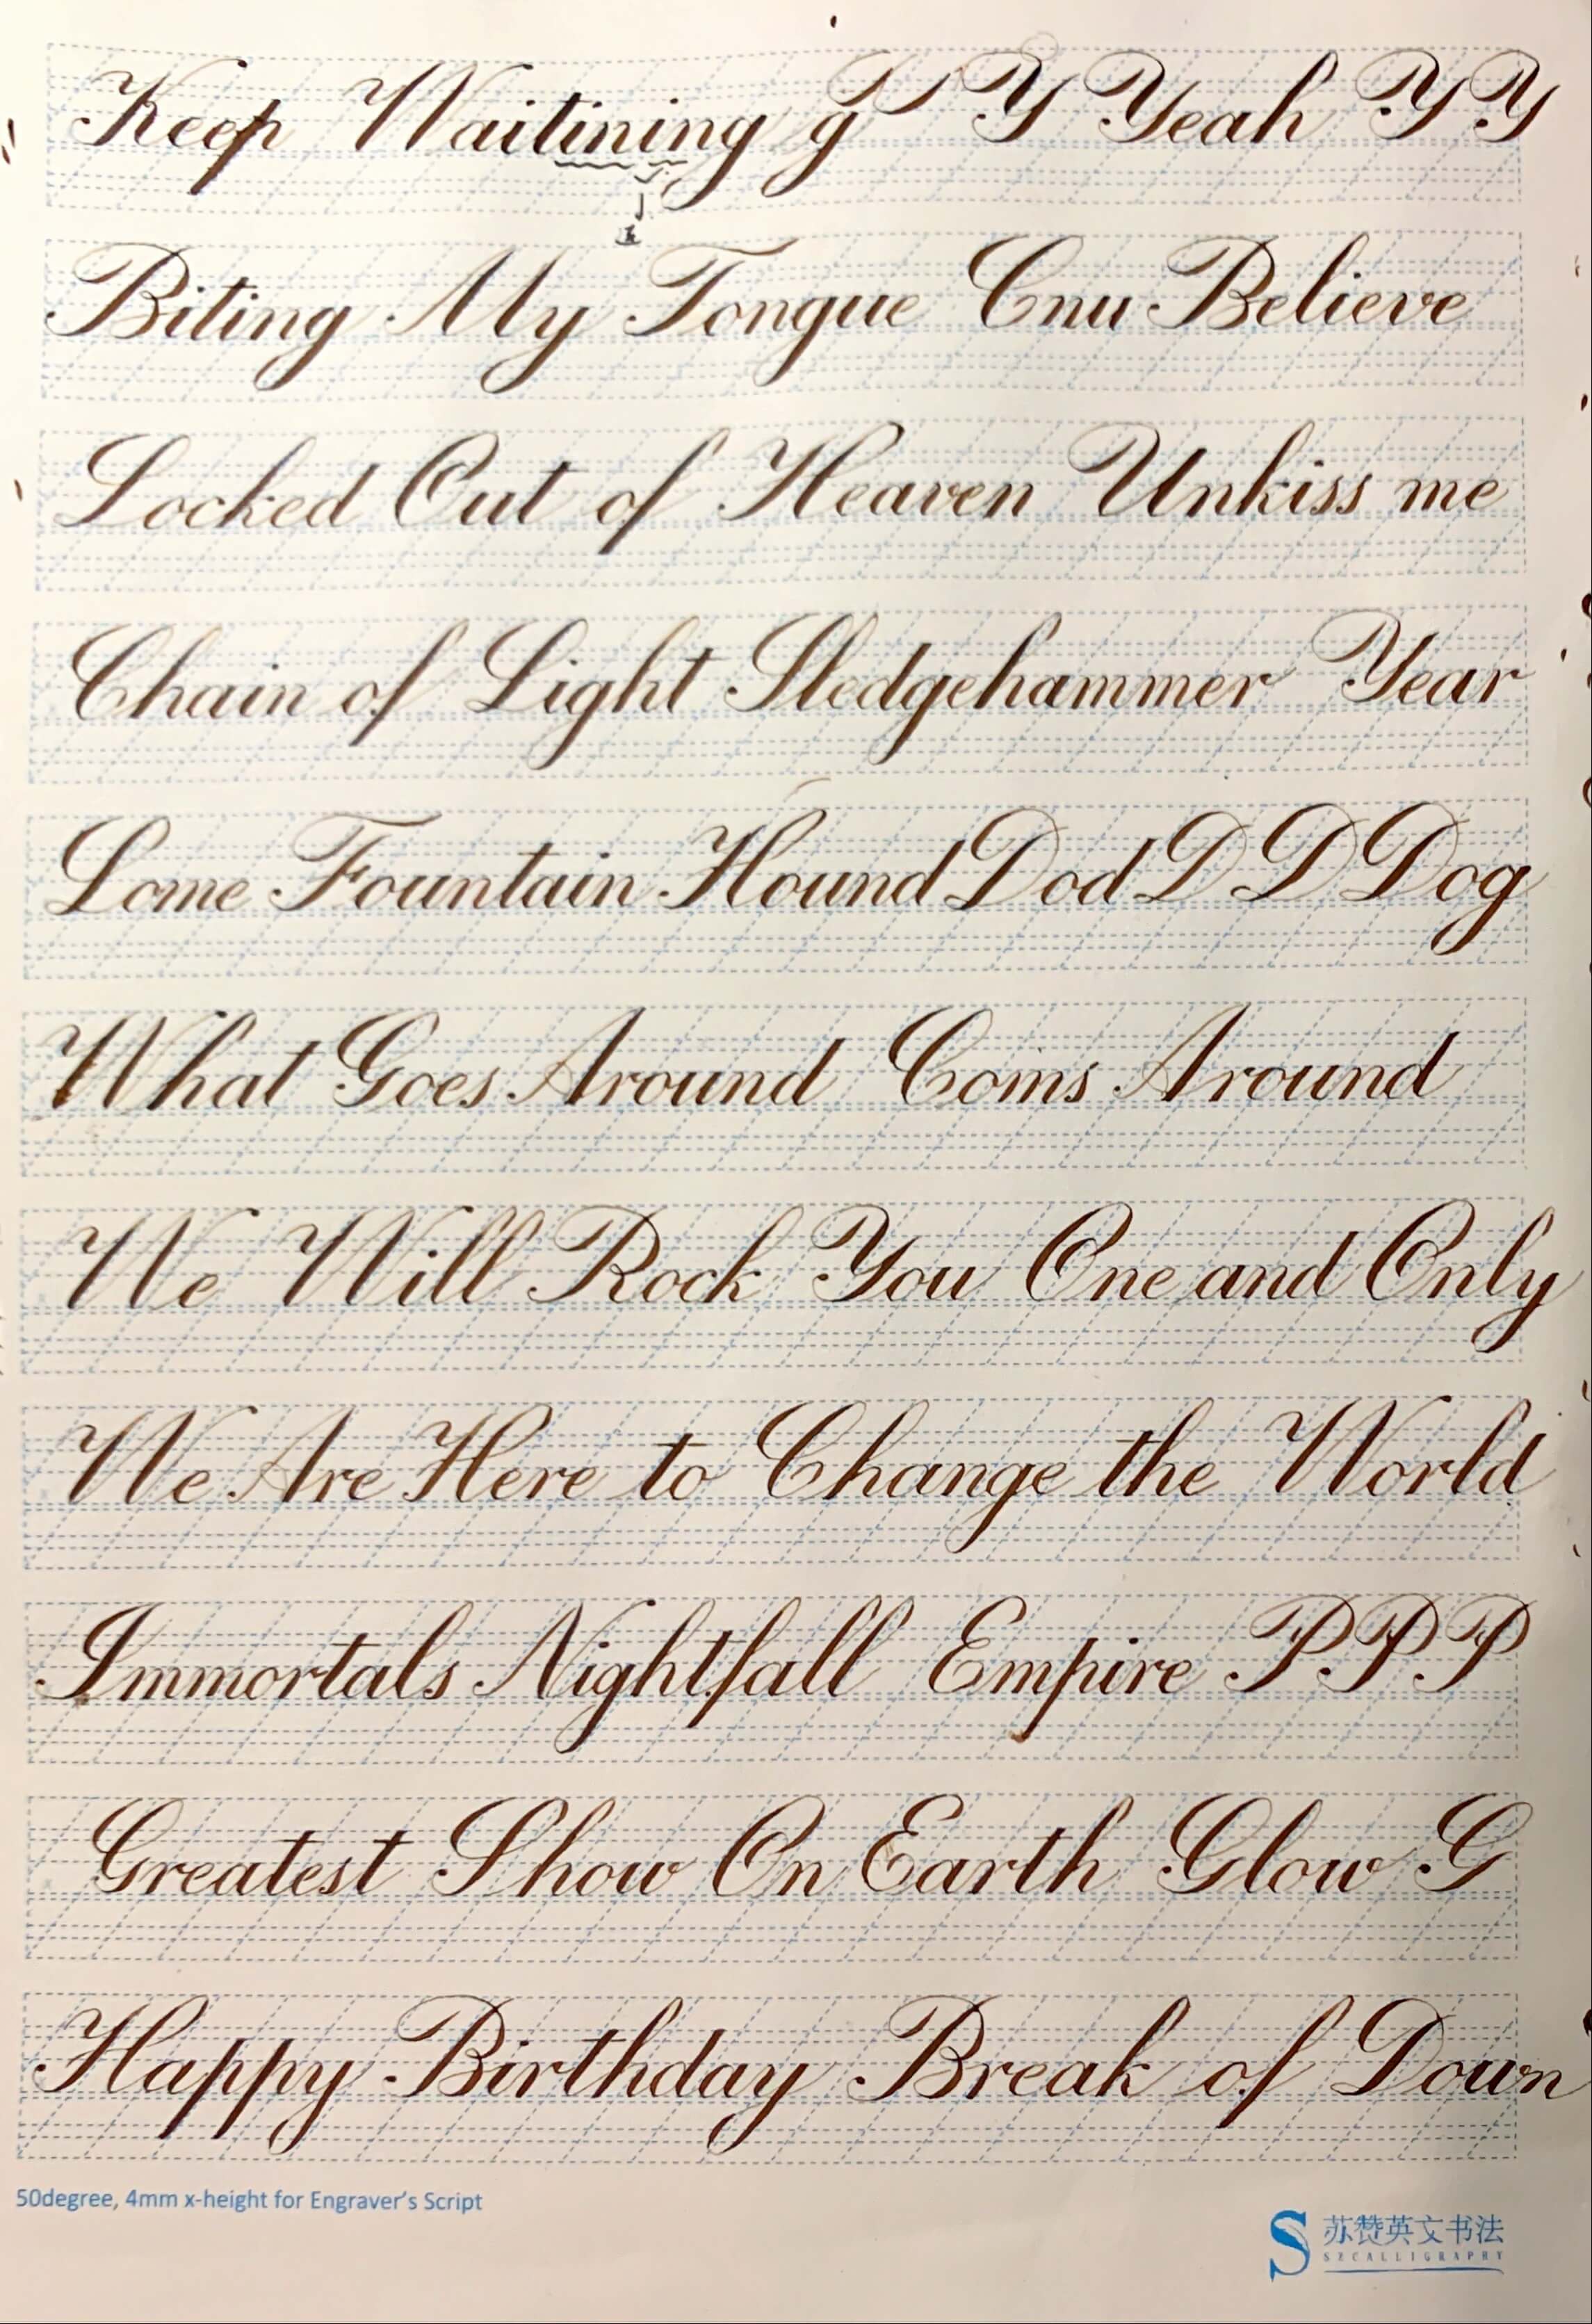 Keep Waitining g P Y Yeah Y Y
Biting My Tongue Cnu Believe
Locked Out of Heaven Unkiss me
Chain of Light Sledgehammer Year
Lome Fountain Hound Dod D D Dog
What Goes Around Coms Around
We Will Rock You One and Only
We Are Here to Change the World
Immortals Nightfall Empire P P P
Greatest Show On Earth Glow G
Happy Birthday Break of Down
50degree, 4mm x-height for Engraver's Script
苏赞英文书法
SZCALLIGRAPHY